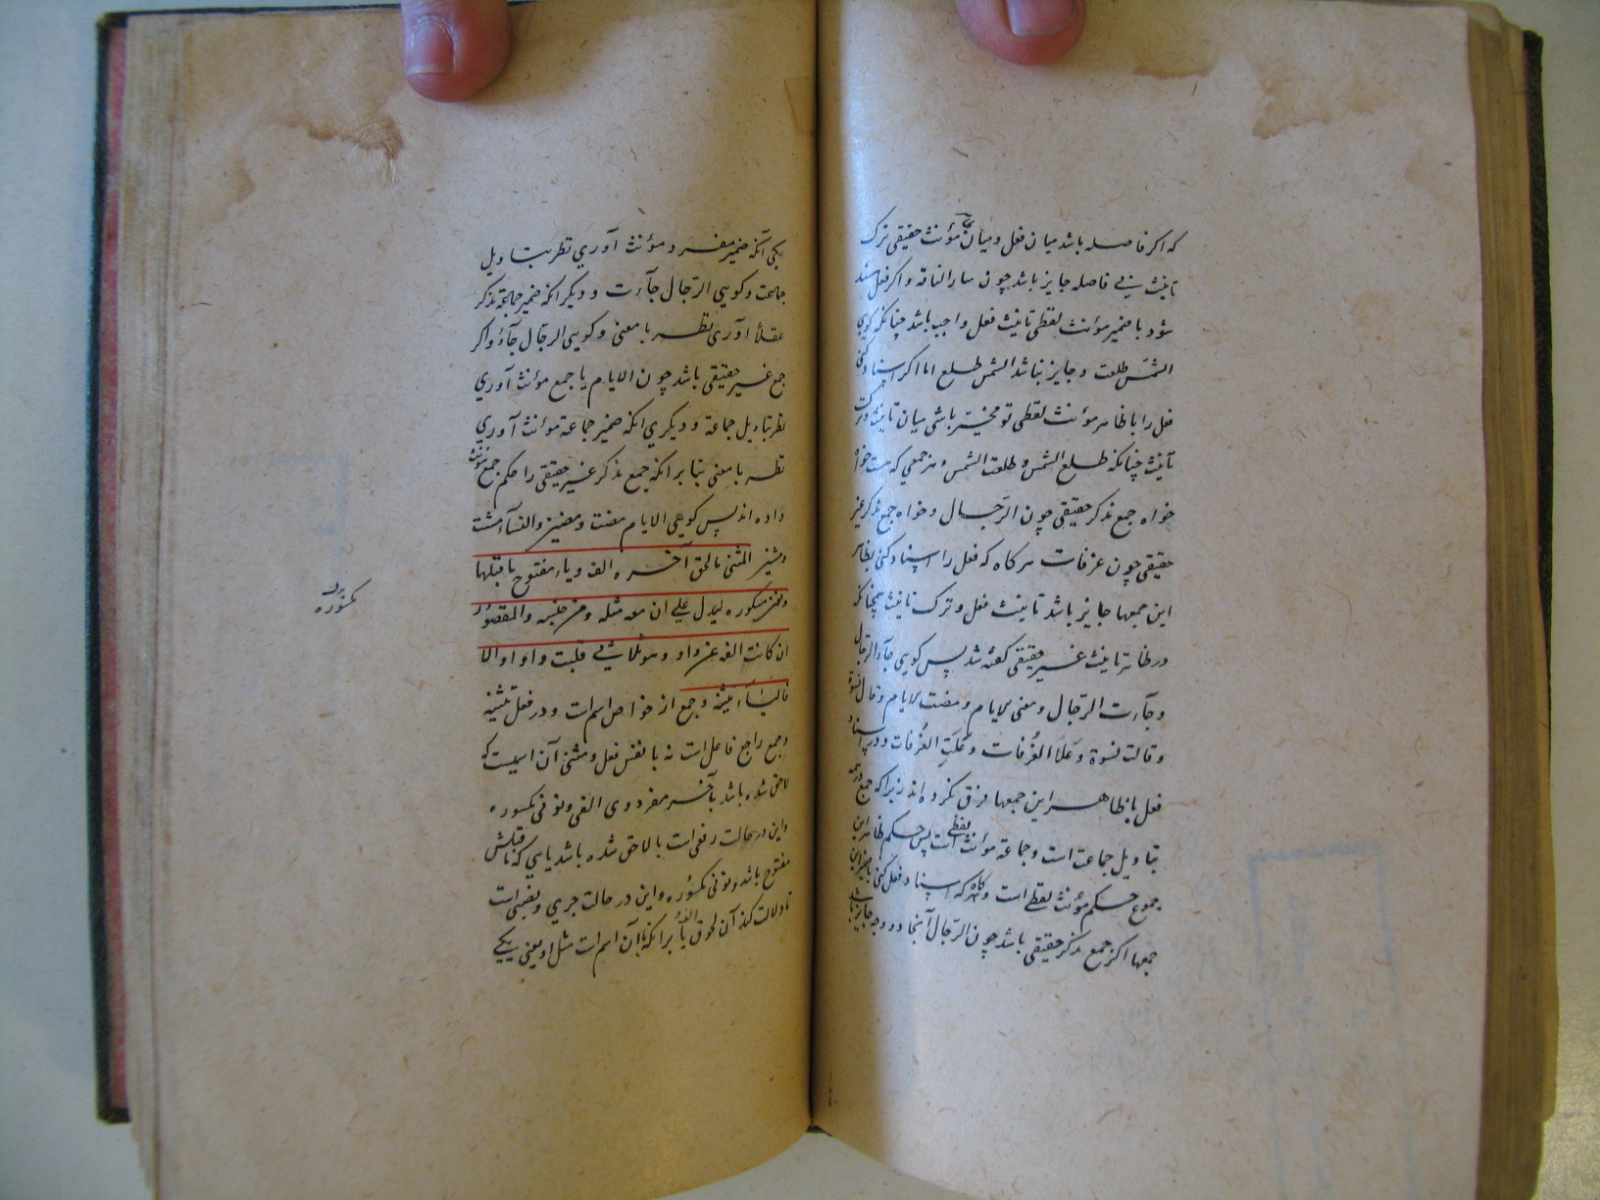 که اکر فاصله باشد میان فعل و میان مؤنث حقیقی ترک
تانیث بی فاصله جایز باشد چون سار الناقة و اکر فعل مسند
شود با ضمیر مؤنث لفظی تانیث فعل واجب باشد چنانکه کویی
الشمس طلعت و جایز نباشد الشمس طلع اما اکر اسناد کنی
فعل را با ظاهر مؤنث لفظی تو مخیر باشی میان تانیث و ترک
تانیث چنانکه طلع الشمس و طلعت الشمس و هر جمعی که هست خواه
خواه جمع مذکر حقیقی چون الرجال و خواه جمع مذکر غیر
حقیقی چون غرفات هر کاه که فعل را اسناد کنی بظاهر
این جمعها جایز باشد تانیث فعل و ترک تانیث همچنانکه
در ظاهر تانیث غیر حقیقی کفته شد پس کویی جآء الرجال
و جآءت الرجال و مضی الایام و مضت الایام و قال نسوة
و قالت نسوة و علا الغرفات و علت الغرفات و در اسناد
فعل بظاهر این جمعها فرق نکرده اند زیرا که جمع همه
بتاویل جماعت است و جماعة مؤنث لفظی است پس حکم ظاهر این
جموع حکم مؤنث لفظی است و کاه که اسناد فعل کنی با ضمیر این
جمعها اکر جمع مذکر حقیقی باشد چون الرجال آنجا دو وجه جایز باشد
یکی آنکه ضمیر مفرد مؤنث آوری نظر بتاویل
جماعت و کویی الرجال جآءت و دیکر انکه ضمیر جماعة مذکر
عقلا آوری نظر با معنی و کویی الرجال جآؤا و اکر
جمع غیر حقیقی باشد چون الایام یا جمع مؤنث آوری
نظر بتاویل جماعة و دیکری انکه ضمیر جماعة مؤنث آوری
نظر با معنی بنا بر انکه جمع مذکر غیر حقیقی را حکم جمع مؤنث
داده اند پس کویی الایام مضت و مضین و النسآء مشت
و مشین المثنی ما لحق آخره الف و یاء مفتوح ما قبلها
و نون مکسوره لیدل علی ان معه مثله من جنسه و المقصور
ان کانت الفه عن واو و هو ثلاثی قلبت واوا و الا
فالیاء تثنیه و جمع از خواص اسم است و در فعل تثنیه
و جمع راجع فاعل است نه با نفس فعل و مثنی آن اسمیست که
لاحق شده باشد بآخر مفرد وی الفی و نونی مکسوره
و این در حالت رفعی است یا لاحق شده باشد یایی که ما قبلش
مفتوح باشد و نونی مکسوره و این در حالت جری و نصبی است
تا دلالت کند آن لحوق الف یا یا بر انکه با آن اسم است مثل او یعنی یکی
مکسوره